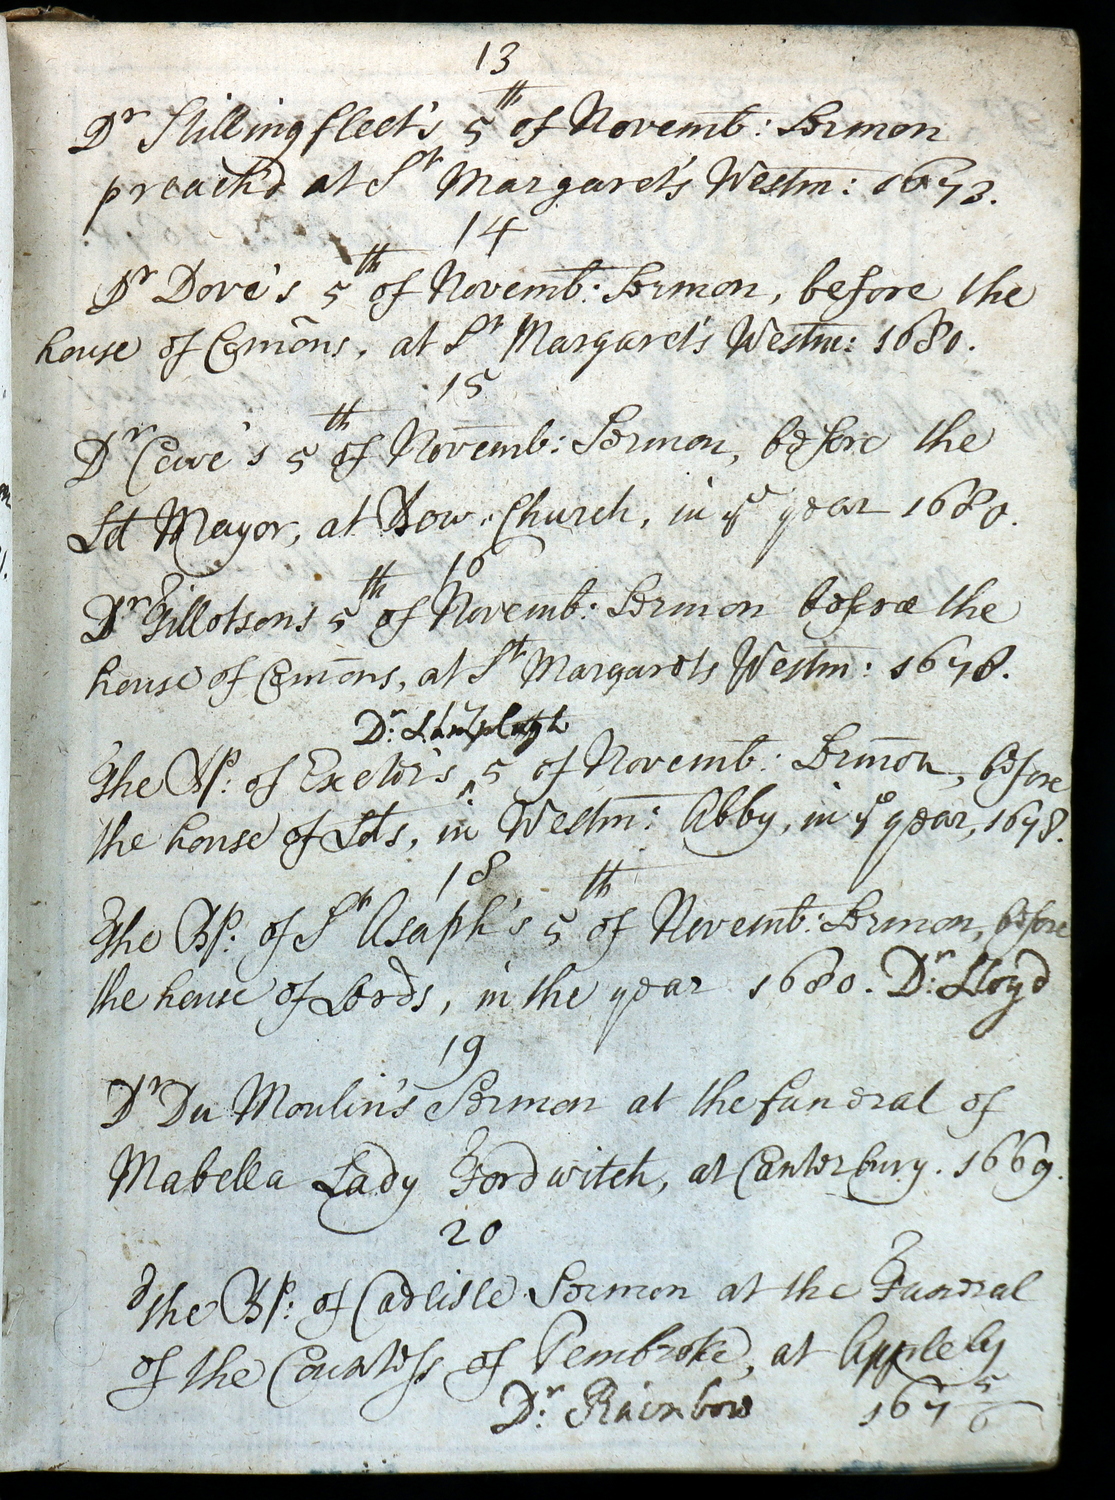 13
Dr Stillingfleet's 5th of Novemb: Sermon
preach'd at St Margaret's Westm: 1673.
14
Dr Dove's 5th of Novemb: Sermon, before the
house of Comõns, at St Margaret's Westm: 1680.
15
Dr Cave's 5th of Novemb: Sermon, before the
Ld Mayor, at Bow-Church, in ye year 1680.
16
Dr Tillotsons 5th of Novemb: Sermon before the
house of Com̄ons, at St Margarets Westm: 1678.
Dr: Lamplugh
The Bp: of Exeter's ‸ 5 of Novemb: Sermon, before
the house of Lds, in Westm: Abby, in ye year, 1678.
18
The Bp: of St Asaph's 5th of Novemb: Sermon, before
the house of Lords, in the year 1680. Dr: Lloyd
19
Dr Du Moulin's Sermon at the funeral of
Mabella Lady Fordwitch, at Canterbury. 1669.
20
The Bp: of Carlisle Sermon at the Funeral
of the Countess of Pembroke, at Appleby
Dr: Rainbow 167 5/6